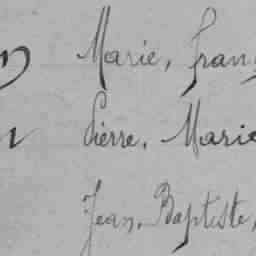 Marie, fran
Pierre, Marie
Jean, Baptiste,